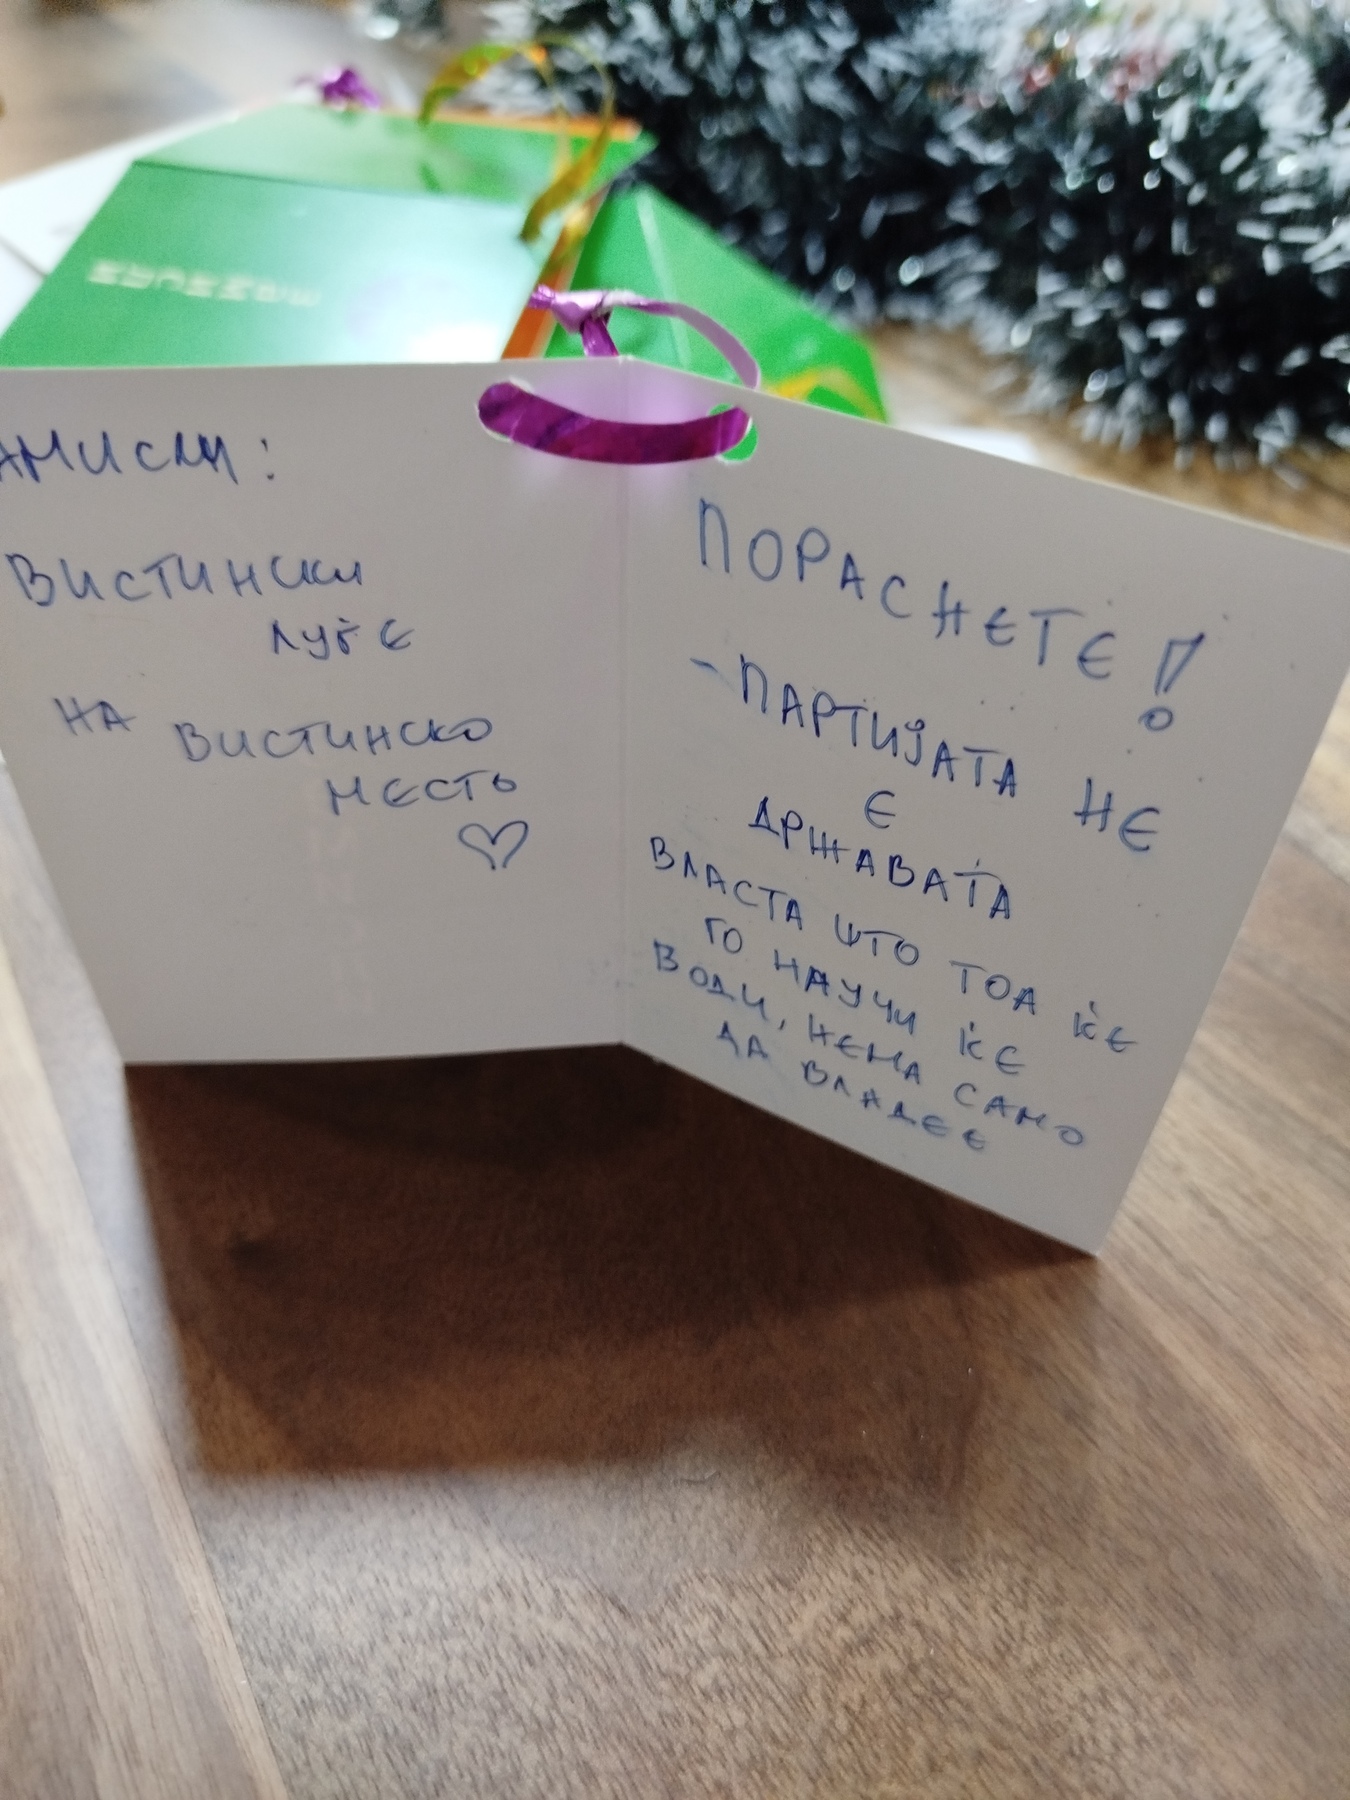 АМИСЛИ:
ВИСТИНСКИ
ЛУЃЕ
НА ВИСТИНСКО
МЕСТО
ПОРАСНЕТЕ!
-ПАРТИЈАТА НЕ
Е
ДРЖАВАТА
ВЛАСТА ШТО ТОА ЌЕ
ГО НАУЧИ ЌЕ
ВОДИ, НЕМА САМО
ДА ВЛАДЕЕ